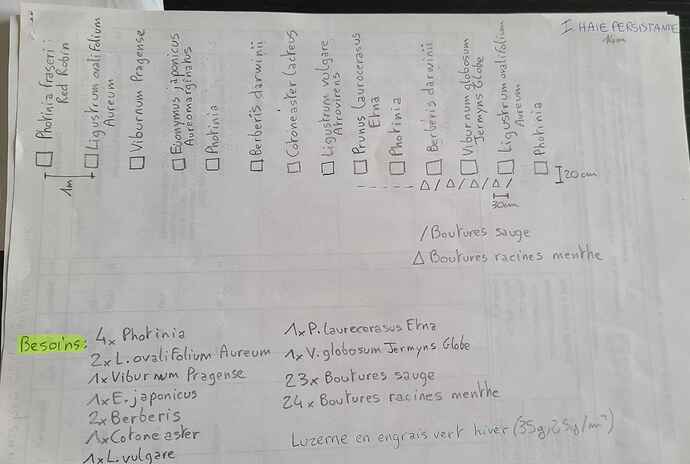 I HAIE PERSISTANTE
14m
Photinia fraseri
Red Robin
Ligustrum ovalifolium
Aureum
Viburnum Pragense
Euonymus japonicus
Aureomarginatus
Photinia
Berberis darwinii
Cotoneaster lacteus
Ligustrum vulgare
Atrovirens
Prunus laurocerasus
Etna
Photinia
Berberis darwinii
Viburnum globosum
Jermyns Globe
Ligustrum ovalifolium
Aureum
Photinia
1m
20cm
30cm
/ Boutures sauge
Δ Boutures racines menthe
Besoins:
4x Photinia
2x L. ovalifolium Aureum
1x Viburnum Pragense
1x E. japonicus
2x Berberis
1x Cotoneaster
1x L. vulgare
1x P. laurecorasus Etna
1x V. globosum Jermyns Globe
23x Boutures sauge
24x Boutures racines menthe
Luzerne en engrais vert hiver (35g, 2,5g/m²)